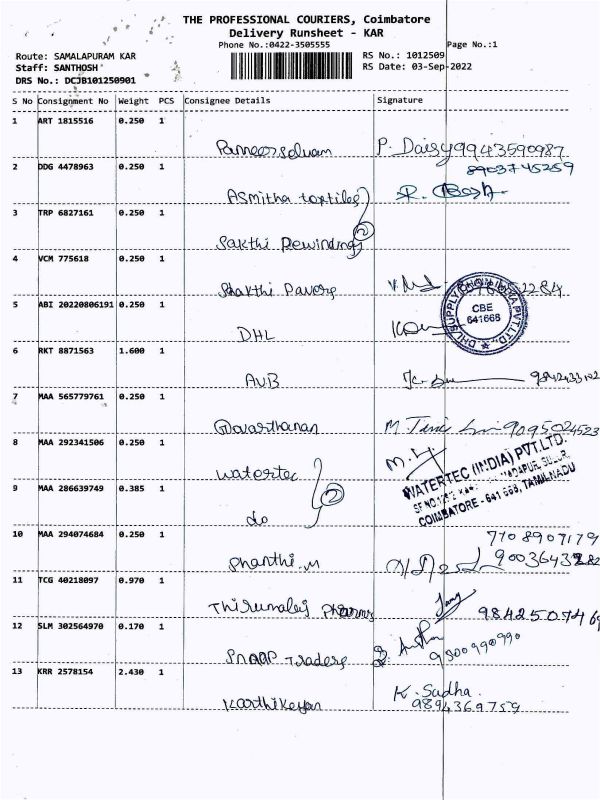 THE PROFESSIONAL COURIERS, Coimbatore
Delivery Runsheet - KAR
Phone No.:0422-3505555
Page No.:1
Route: SAMALAPURAM KAR
RS No.: 1012509
Staff: SANTHOSH
RS Date: 03-Sep-2022
DRS No.: DCJB101250901
S No Consignment No Weight PCS Consignee Details Signature
1 ART 1815516 0.250 1
Panneerselvam P. Daisy 9943590987
2 DDG 4478963 0.250 1
8903745259
Asmitha textiles
3 TRP 6827161 0.250 1
Sakthi Rewinding 2
4 VCM 775618 0.250 1
Shakthi Pavers
5 ABI 20220806191 0.250 1
DHL
CBE
641668
6 RKT 8871563 1.600 1
AVB
7 MAA 565779761 0.250 1
Govarthanan M. 9095024523
8 MAA 292341506 0.250 1
Watertec
WATERTEC (INDIA) PVT.LTD.
9 MAA 286639749 0.385 1
do 2
COIMBATORE - 641 668, TAMILNADU
10 MAA 294074684 0.250 1
7708907179
Shanthi.M
11 TCG 40218097 0.970 1
Thirumalai
12 SLM 302564970 0.170 1
SNAAP Traders 9500990990
13 KRR 2578154 2.430 1
Karthikeyan K. Sudha.
9894369759